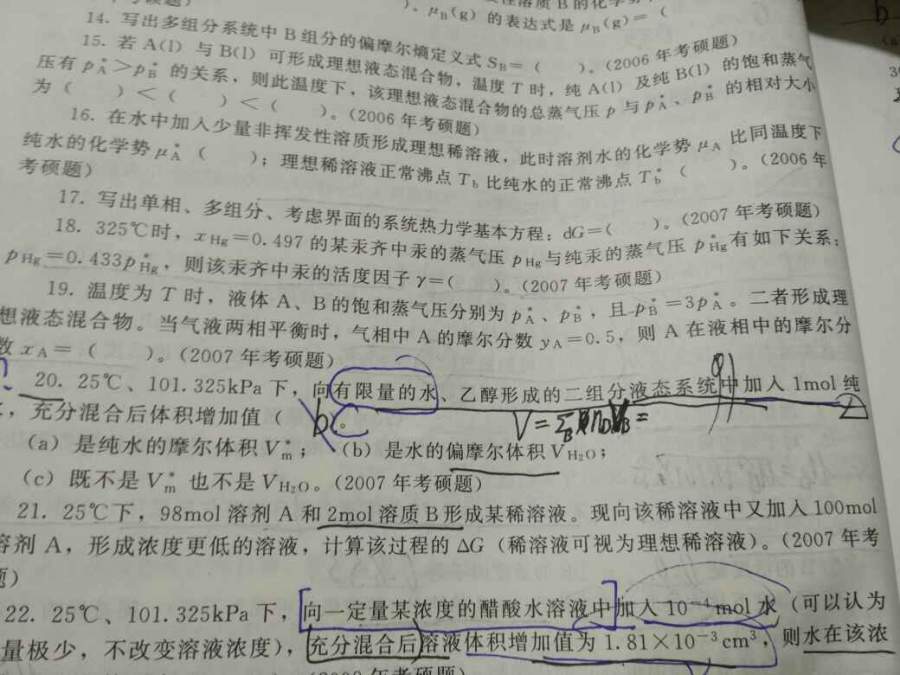 14. 写出多组分系统中 B 组分的偏摩尔熵定义式 S_B=（　　）。（2006 年考硕题）
）。μ_B(g) 的表达式是 μ_B(g)=（
15. 若 A(l) 与 B(l) 可形成理想液态混合物，温度 T 时，纯 A(l) 及纯 B(l) 的饱和蒸气
压有 p*_A＞p*_B 的关系，则此温度下，该理想液态混合物的总蒸气压 p 与 p*_A、p*_B 的相对大小
为（　　）＜（　　）＜（　　）。（2006 年考硕题）
16. 在水中加入少量非挥发性溶质形成理想稀溶液，此时溶剂水的化学势 μ_A 比同温度下
纯水的化学势 μ*_A（　　）；理想稀溶液正常沸点 T_b 比纯水的正常沸点 T*_b（　　）。（2006 年
考硕题）
17. 写出单相、多组分、考虑界面的系统热力学基本方程：dG=（　　）。（2007 年考硕题）
18. 325℃时，x_Hg=0.497 的某汞齐中汞的蒸气压 p_Hg 与纯汞的蒸气压 p*_Hg 有如下关系：
p_Hg=0.433p*_Hg，则该汞齐中汞的活度因子 γ=（　　）。（2007 年考硕题）
19. 温度为 T 时，液体 A、B 的饱和蒸气压分别为 p*_A、p*_B，且 p*_B=3p*_A。二者形成理
想液态混合物。当气液两相平衡时，气相中 A 的摩尔分数 y_A=0.5，则 A 在液相中的摩尔分
数 x_A=（　　）。（2007 年考硕题）
20. 25℃、101.325kPa 下，向有限量的水、乙醇形成的二组分液态系统中加入 1mol 纯
，充分混合后体积增加值（ b 。
（a）是纯水的摩尔体积 V*_m；（b）是水的偏摩尔体积 V_H₂O；
（c）既不是 V*_m 也不是 V_H₂O。（2007 年考硕题）
21. 25℃下，98mol 溶剂 A 和 2mol 溶质 B 形成某稀溶液。现向该稀溶液中又加入 100mol
溶剂 A，形成浓度更低的溶液，计算该过程的 ΔG（稀溶液可视为理想稀溶液）。（2007 年考
题）
22. 25℃、101.325kPa 下，向一定量某浓度的醋酸水溶液中加入 10⁻⁴mol 水（可以认为
量极少，不改变溶液浓度），充分混合后溶液体积增加值为 1.81×10⁻³cm³，则水在该浓